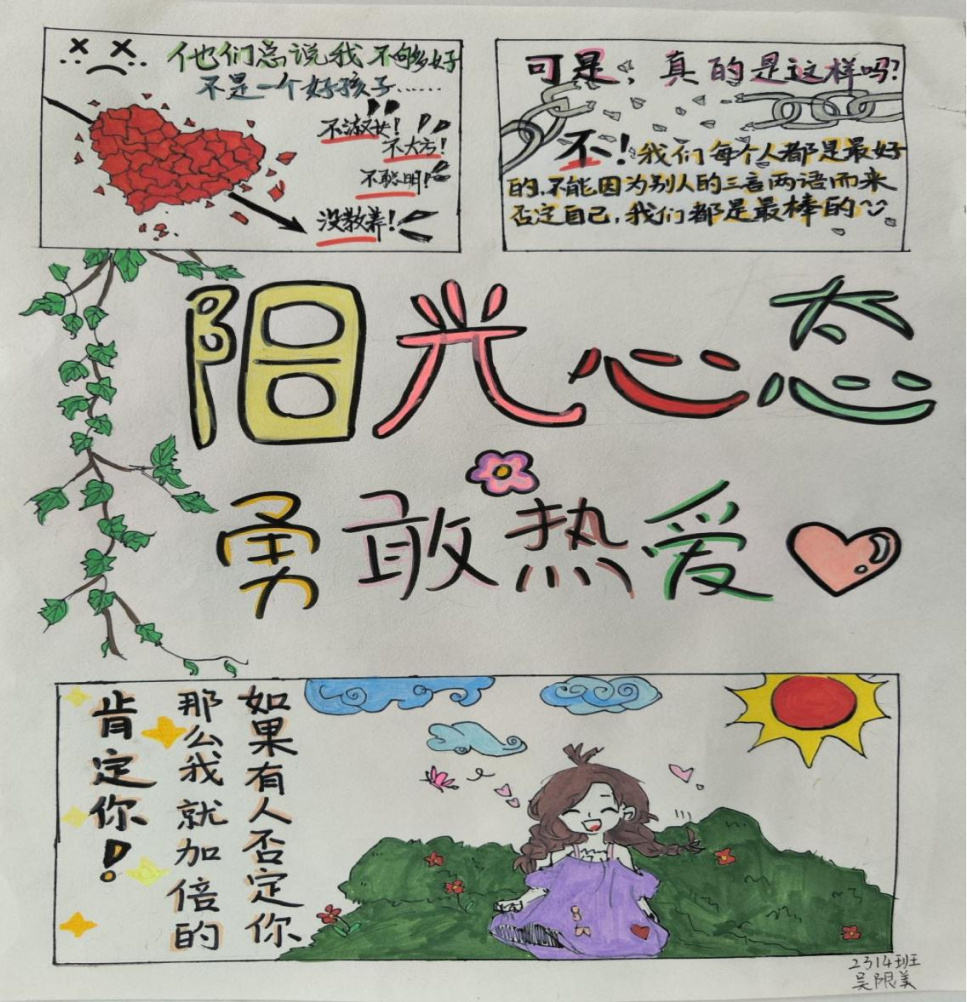 他们总说我不够好
不是一个好孩子……
不淑女！
不大方！
不聪明！
没教养！
可是，真的是这样吗？
不！我们每个人都是最好
的，不能因为别人的三言两语而来
否定自己，我们都是最棒的～
阳光心态
勇敢热爱
如果有人否定你
那么我就加倍的
肯定你！
2314班
吴限美